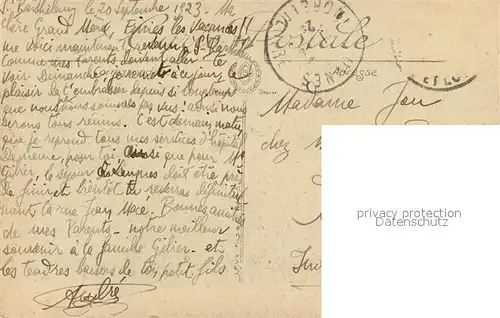 St Barthélemy le 20 Septembre 1923.
Chère Grand Mère, Finies les Vacances!!
me voici maintenant
comme mes Parents doivent aller te
voir Dimanche
plaisir de t'embrasser depuis si longtemps
que nous nous sommes pas vus; ainsi nous
serons tous réunis. C'est demain matin
que je reprend tous mes services d'hôpital
pour toi ainsi que pour Mr
Gilier, le séjour doit être près
de finir et bientôt tu reverras définitive
ment la rue Jean Macé. Bonnes amitiés
de mes Parents - notre meilleur
souvenir à la famille Gilier - et
les tendres baisers de ton petit fils
André
Postale
Adresse
Madame
chez
privacy protection
Datenschutz